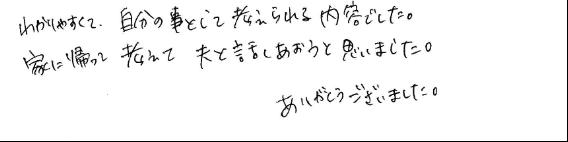 わかりやすくて、自分の事として考えられる内容でした。
家に帰って考えて夫と話しあおうと思いました。
ありがとうございました。